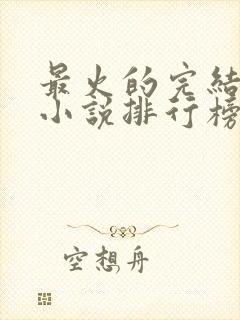 最火的完結
小說排行榜
空想舟